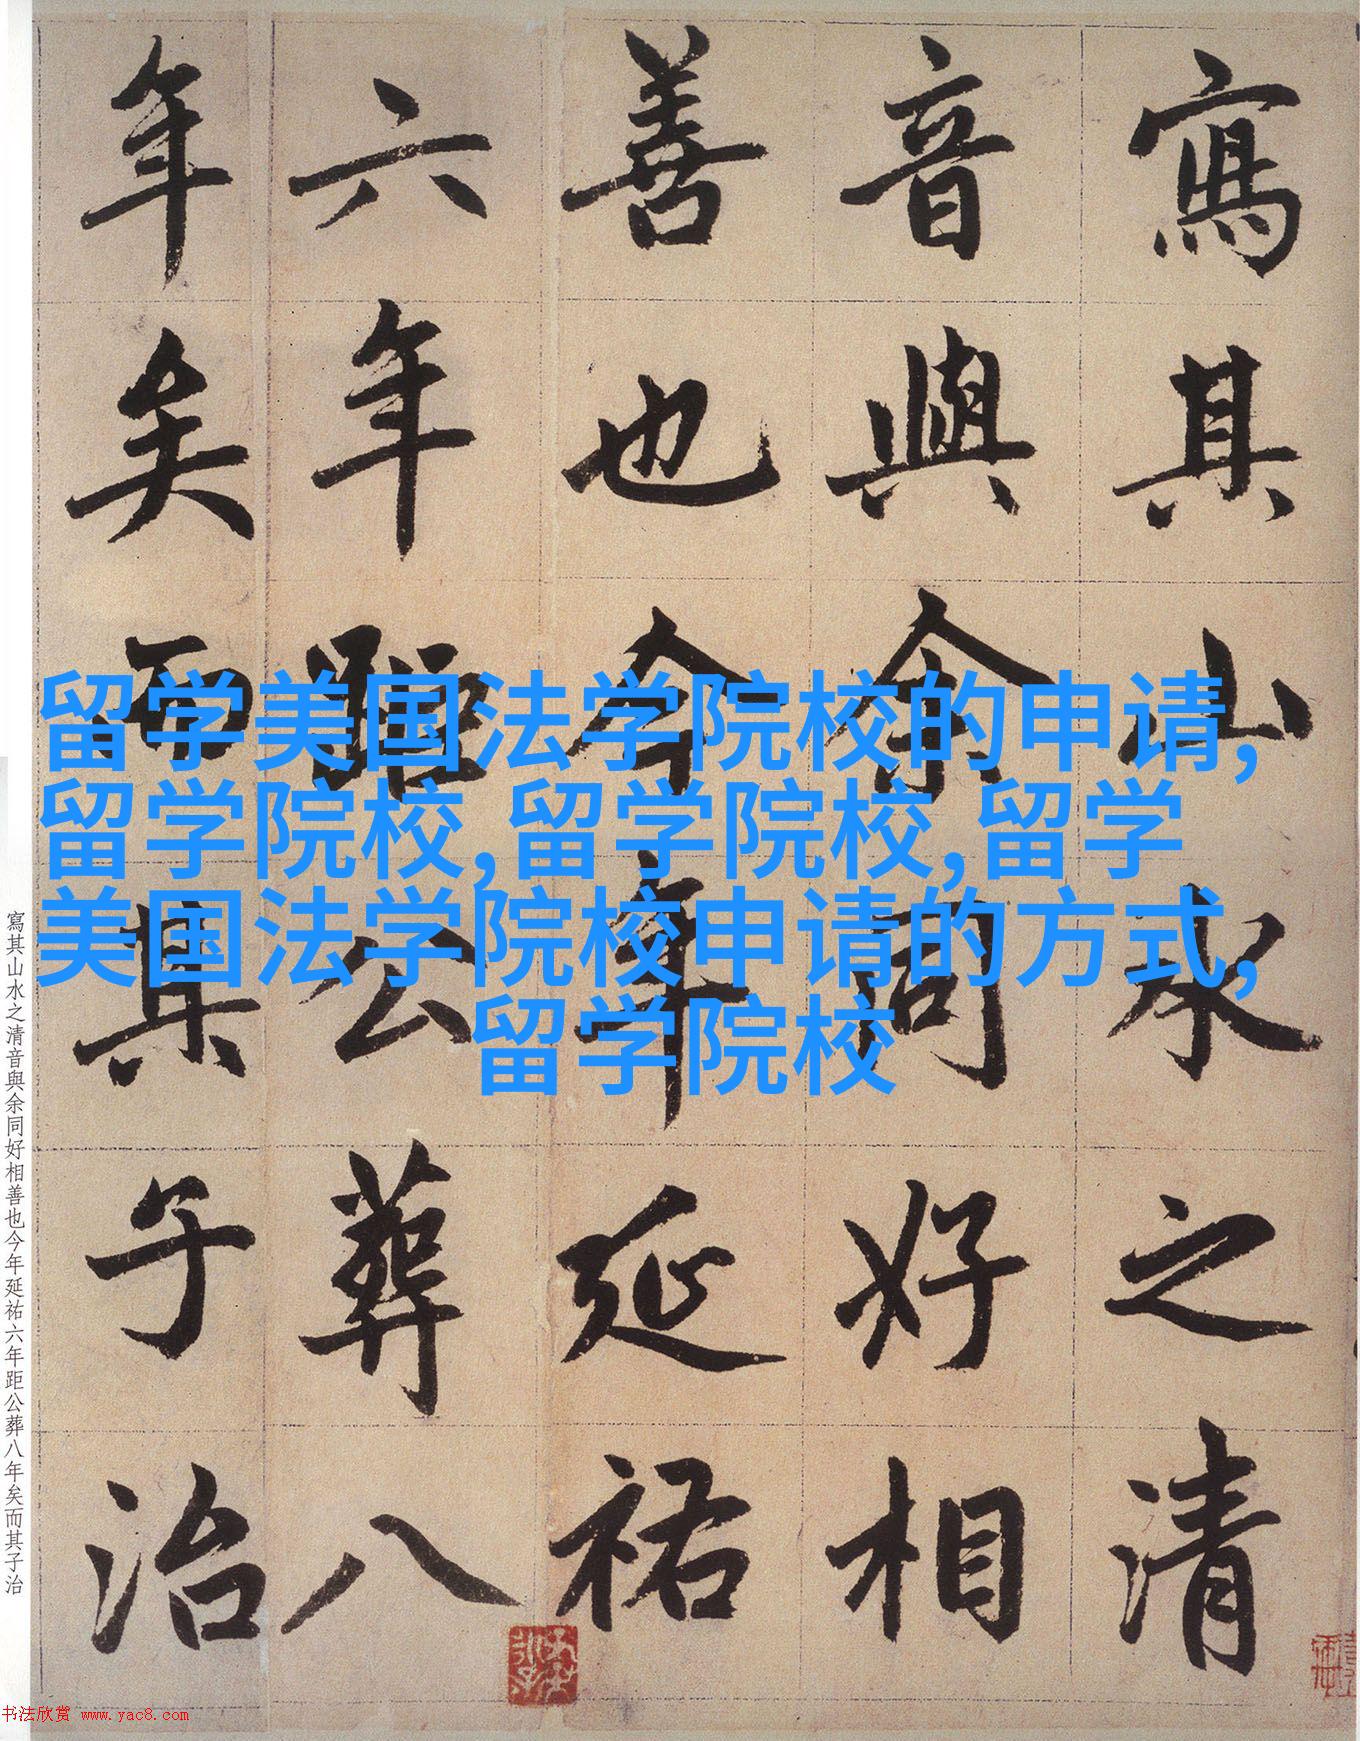 寫其山水之清
音與余同好相
善也今年延祐
六年距公葬八
年矣而其子治
留学美国法学院校的申请,
留学院校,留学院校,留学
美国法学院校申请的方式,
留学院校
寫其山水之清音與余同好相善也今年延祐六年距公葬八年矣而其子治
书法欣赏 www.yac8.com